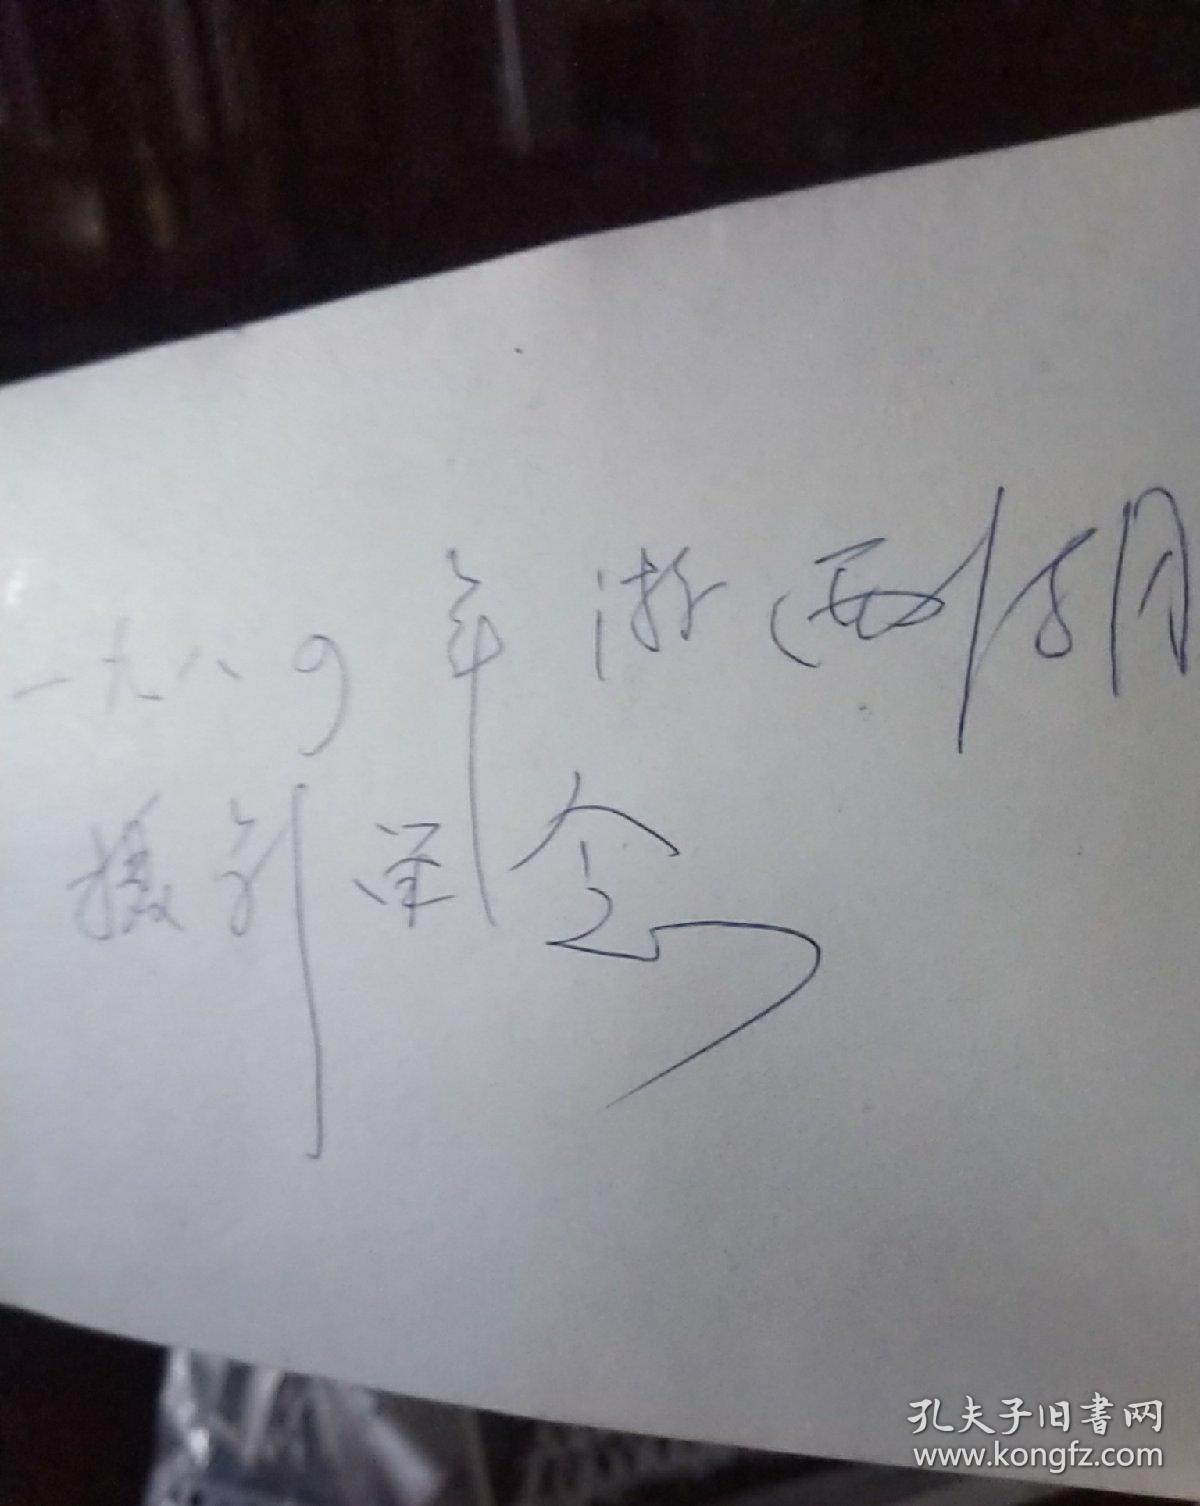 一九八9年游西湖
摄影留念
孔夫子旧書网
www.kongfz.com